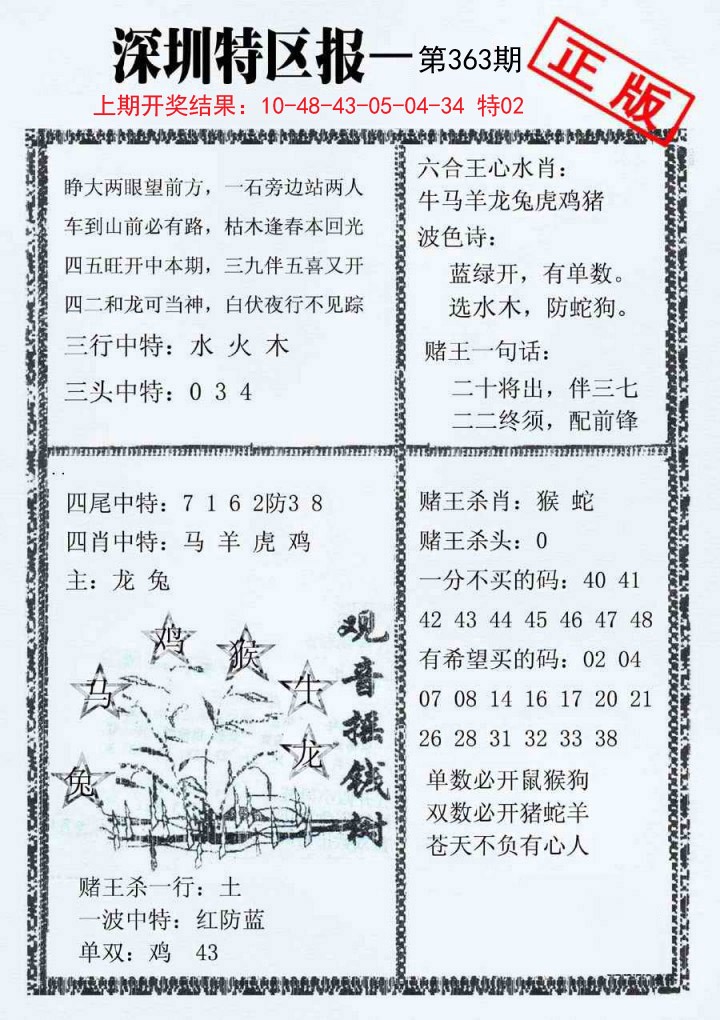 深圳特区报—第363期
正版
上期开奖结果：10-48-43-05-04-34 特02
睁大两眼望前方，一石旁边站两人
车到山前必有路，枯木逢春本回光
四五旺开中本期，三九伴五喜又开
四二和龙可当神，白伏夜行不见踪
三行中特：水 火 木
三头中特：0 3 4
六合王心水肖：
牛马羊龙兔虎鸡猪
波色诗：
蓝绿开，有单数。
选水木，防蛇狗。
赌王一句话：
二十将出，伴三七
二二终须，配前锋
四尾中特：7 1 6 2防3 8
四肖中特：马 羊 虎 鸡
主：龙 兔
鸡
猴
马
牛
龙
兔
观音摇钱树
赌王杀一行：土
一波中特：红防蓝
单双：鸡 43
赌王杀肖：猴 蛇
赌王杀头：0
一分不买的码：40 41
42 43 44 45 46 47 48
有希望买的码：02 04
07 08 14 16 17 20 21
26 28 31 32 33 38
单数必开鼠猴狗
双数必开猪蛇羊
苍天不负有心人